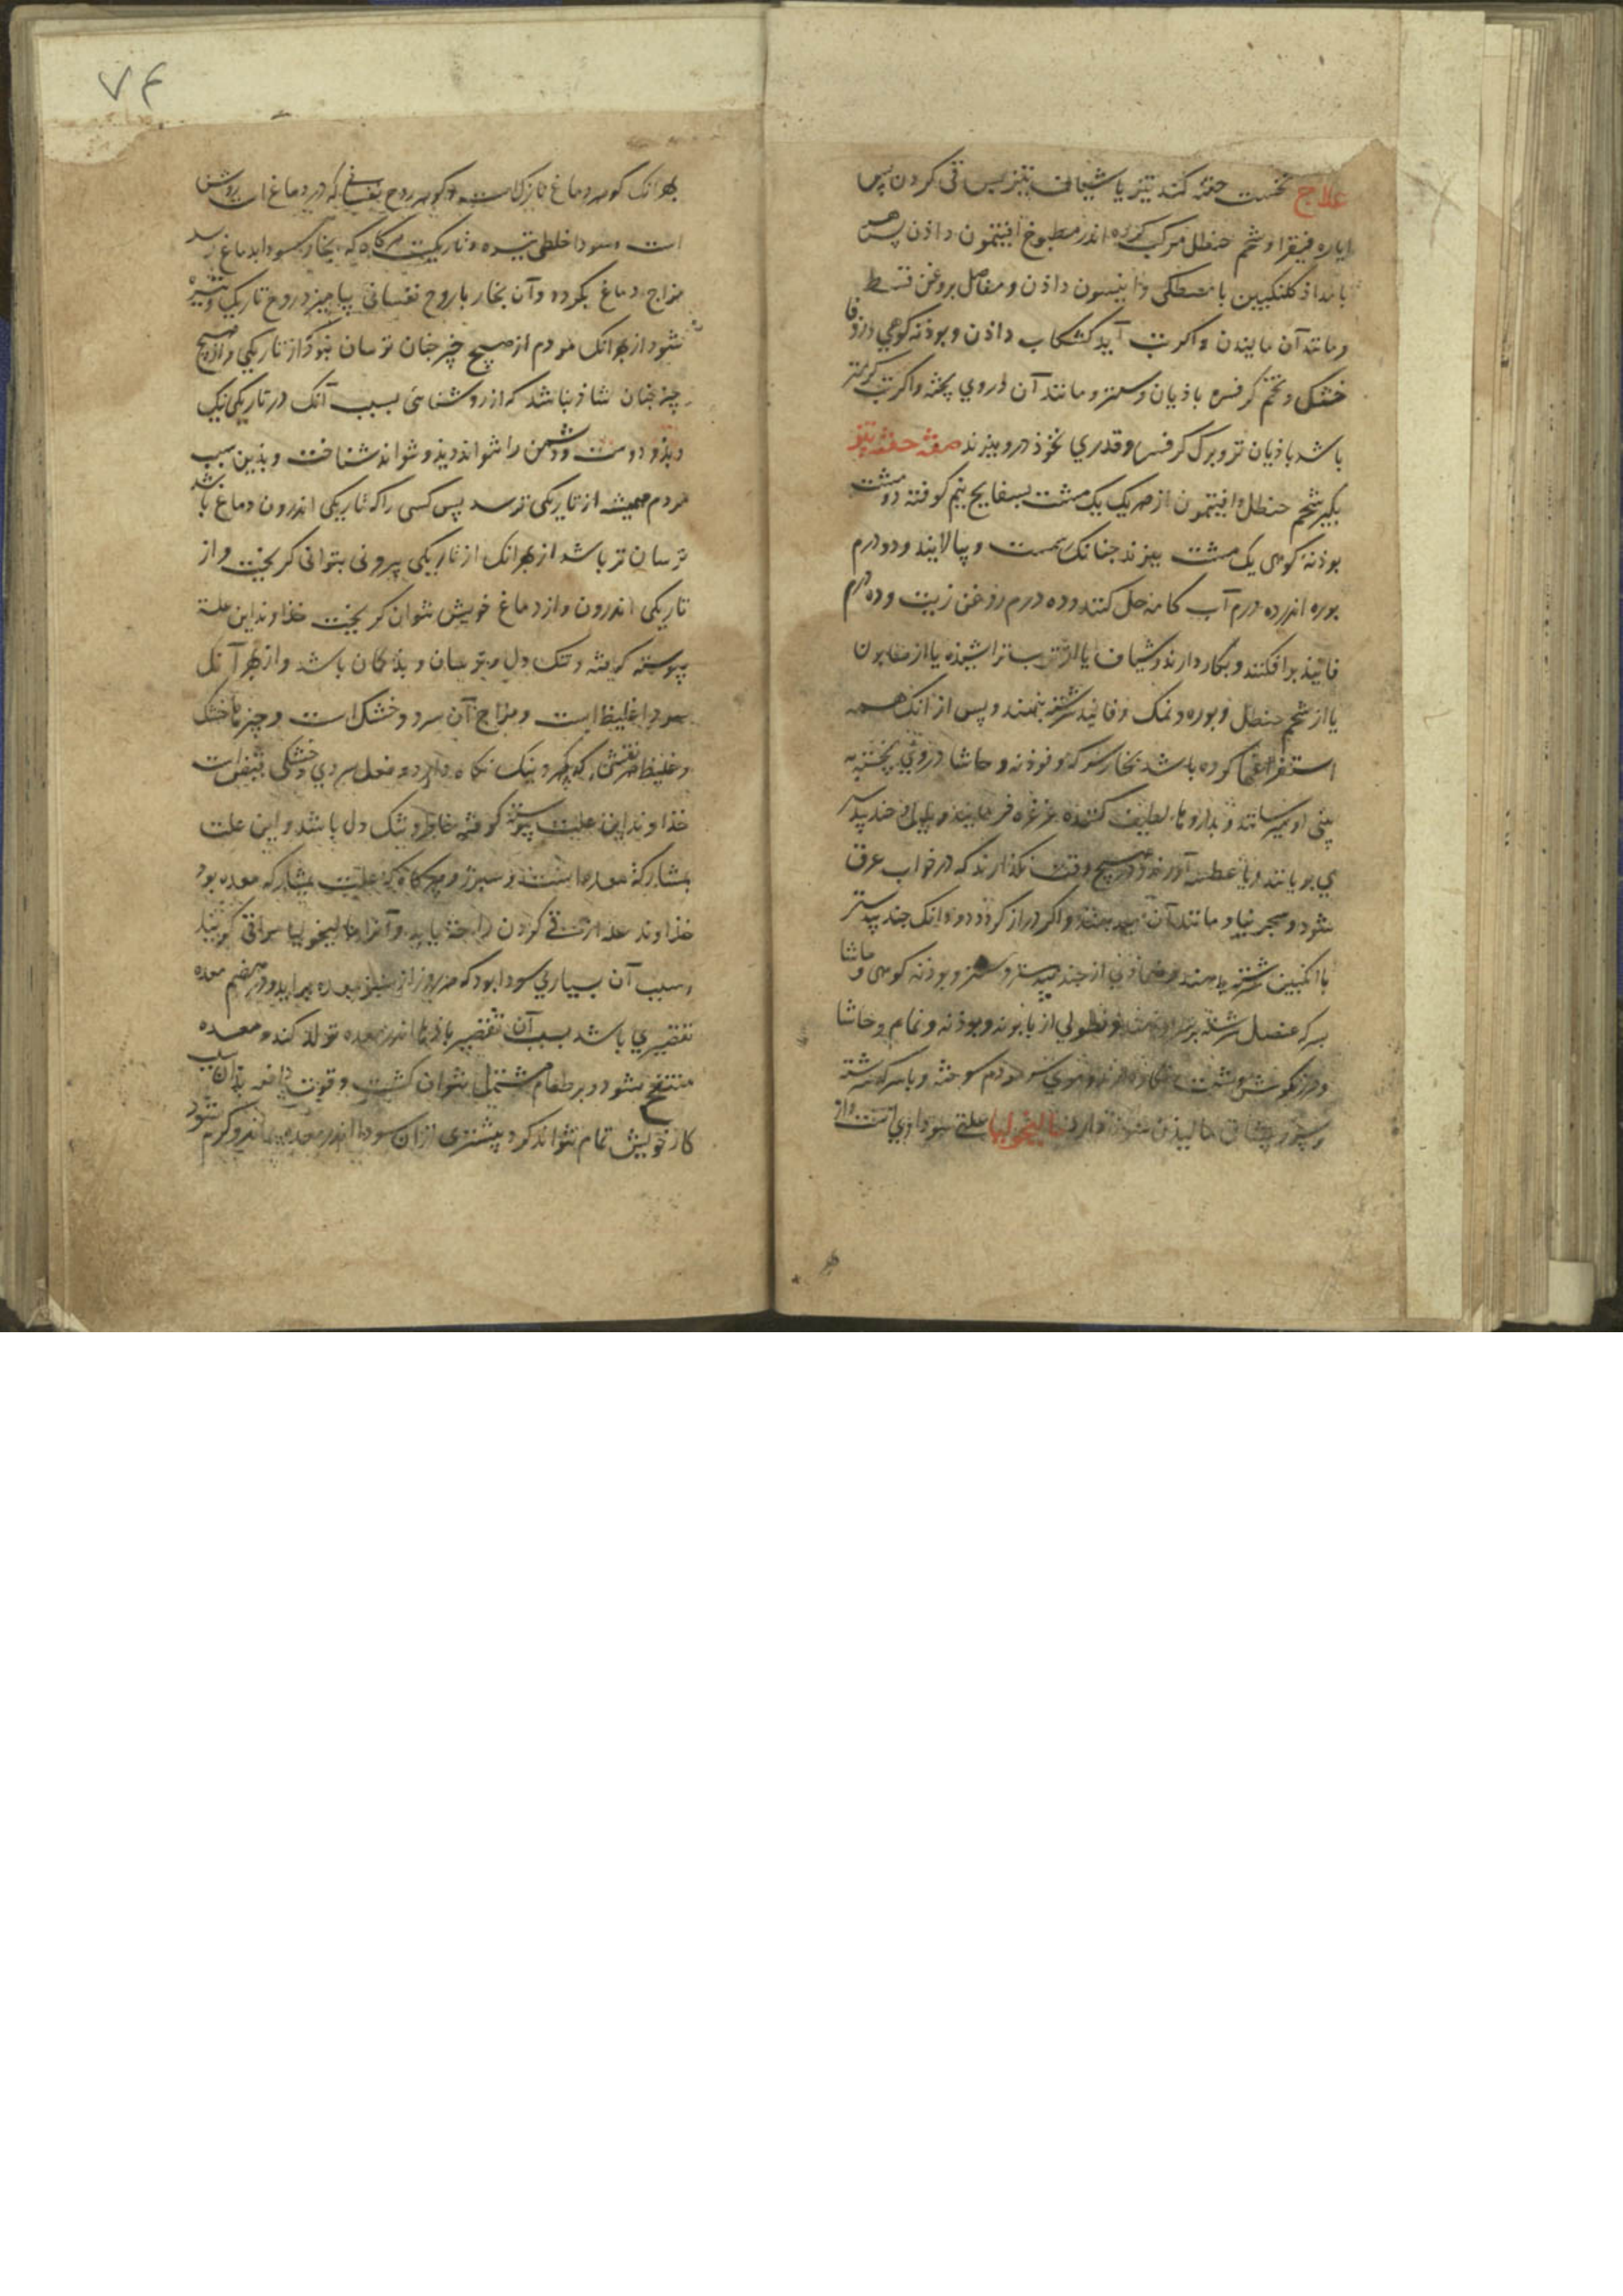 علاج نخست حقنه کنند تیز یا شیاف تیز پس قی کردن پس
ایاره فیقرا و شحم حنظل مرکب کرده اندر مطبوخ افیتمون داذن پس هر
بامداذ کلنکبین با مصطکی و انیسون داذن و مفاصل بروغن قسط
و مانند آن مالیدن و اکر تب آید کشکاب داذن و بوذنه کوهی و زوفا
خشک و تخم کرفس و باذیان و سعتر و مانند آن دروی پخته و اکر تب کرمتر
باشد باذیان تر و برک کرفس و قدری نخوذ درو بپزند صفة حقنه تیز
بکیرند شحم حنظل و افیتمون از هر یک یک مشت بسفایج نیم کوفته دو مشت
بوذنه کوهی یک مشت بپزند جنانک رسمست و بپالایند و دو درم
بوره اندر ده درم آب کامه حل کنند و ده درم روغن زیت و ده درم
فانیذ برافکنند و بکار دارند و شیاف یا از ترب تراشیذه یا از صابون
یا از شحم حنظل و بوره و نمک و فانیذ سرشته بنهند و پس از انک همه
استفراغها کرده باشد بخار سرکه و فوذنه و حاشا دروی پخته به
بینی او میرسانند و بداروها لطیف کننده غرغره فرمایند و جند بیدستر
می بویانند و عطسه آورند و هیچ وقت نکذارند که در خواب غرق
شود و معجر بنیا و مانند آن میدهند و اکر دراز کردد دو دانک جند بیدستر
با انکبین سرشته بدهند و ضماذی از جند بیدستر و سعتر و بوذنه کوهی و حاشا
بسرکه عنصل سرشته بر نهند و نطولی از بابونه و بوذنه و نمام و حاشا
و مرزنکوش و شبت بکار دارند و موی سر مردم سوخته و با سرکه سرشته
بر پیشانی مالیذن سوذ دارد مالیخولیا علتی سوداوی است و از
۷۴
بهر انک کوهر دماغ نازکست و کوهر روح نفسانی که در دماغ است روشن
است و سودا خلطی تیره و تاریکست هرکاه که بخار سودا بدماغ رسد
مزاج دماغ بکردد و آن بخار با روح نفسانی بیامیزد روح تاریک و تیره
شود از بهر انک مردم از هیچ چیز جنان ترسان نبوذ کز تاریکی و از هیچ
چیز جنان شاذ نباشد که از روشنائی بسبب آنک در تاریکی نیک
و بذ و دوست و دشمن را نتواند دیذ و نتواند شناخت و بذین سبب
مردم همیشه از تاریکی ترسد پس کسی را که تاریکی اندرون دماغ باشد
ترسان تر باشد از بهر انک از تاریکی بیرونی بتوانی کریخت و از
تاریکی اندرون و از دماغ خویش نتوان کریخت خذاوند این علة
پیوسته کرفته و تنک دل و ترسان و بذ کمان باشد و از بهر آنک
سودا غلیظ است و مزاج آن سرد و خشک است و چیزها خشک
و غلیظ هر نقشی که پذیرد نیک نکاه دارد و فعل سردی و خشکی
خذاوند این علت پیوسته کوفته خاطر و تنک دل باشد و این علت
بمشارکة معده است و سپرز و هرکاه که علت بمشارکة معده بود
خذاوند علة از قی کردن راحة یابد و آنرا مالیخولیا مراقی کویند
و سبب آن بسیاری سودا بود که هر روز از سپرز بمعده برآید و در هضم معده
تقصیری باشد بسبب آن تقصیر باذها اندر معده تولد کند و معده
منتفخ شود و بر طعام مشتمل نتوان کشت و قوت دافعه بذان سبب
کار خویش تمام نتواند کرد و بیشتری ازان سودا اندر معده بماند و کرم شود